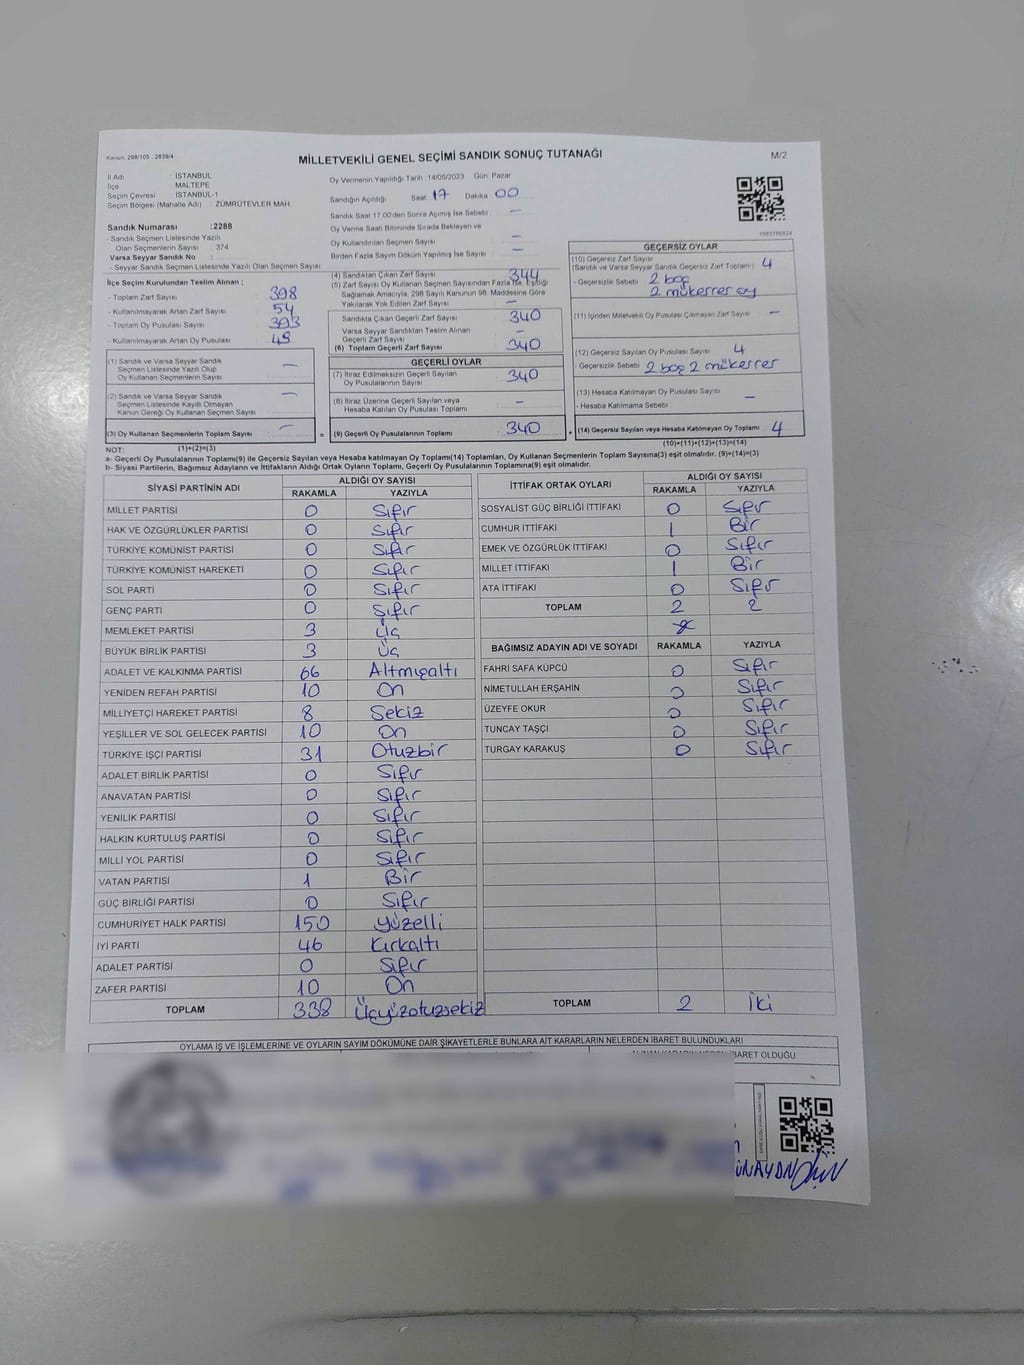 Kanun: 298/105 , 2839/4
MİLLETVEKİLİ GENEL SEÇİMİ SANDIK SONUÇ TUTANAĞI
M/2
İl Adı : İSTANBUL
İlçe : MALTEPE
Seçim Çevresi : İSTANBUL-1
Seçim Bölgesi (Mahalle Adı) : ZÜMRÜTEVLER MAH.
Sandık Numarası :2288
- Sandık Seçmen Listesinde Yazılı
Olan Seçmenlerin Sayısı : 374
Varsa Seyyar Sandık No :
- Seyyar Sandık Seçmen Listesinde Yazılı Olan Seçmen Sayısı
İlçe Seçim Kurulundan Teslim Alınan ;
- Toplam Zarf Sayısı : 398
- Kullanılmayarak Artan Zarf Sayısı : 54
- Toplam Oy Pusulası Sayısı : 393
- Kullanılmayarak Artan Oy Pusulası : 49
(1) Sandık ve Varsa Seyyar Sandık
Seçmen Listesinde Yazılı Olup
Oy Kullanan Seçmenlerin Sayısı : —
(2) Sandık ve Varsa Seyyar Sandık
Seçmen Listesinde Kayıtlı Olmayan
Kanun Gereği Oy Kullanan Seçmen Sayısı : —
(3) Oy Kullanan Seçmenlerin Toplam Sayısı : —
Oy Vermenin Yapıldığı Tarih : 14/05/2023 Gün: Pazar
Sandığın Açıldığı Saat 17 Dakika 00
Sandık Saat 17:00'den Sonra Açılmış İse Sebebi : —
Oy Verme Saati Bitiminde Sırada Bekleyen ve
Oy Kullandırılan Seçmen Sayısı —
Birden Fazla Sayım Döküm Yapılmış İse Sayısı —
(4) Sandıktan Çıkan Zarf Sayısı 344
(5) Zarf Sayısı Oy Kullanan Seçmen Sayısından Fazla İse, Eşitliği
Sağlamak Amacıyla, 298 Sayılı Kanunun 98. Maddesine Göre
Yakılarak Yok Edilen Zarf Sayısı : —
Sandıkta Çıkan Geçerli Zarf Sayısı 340
Varsa Seyyar Sandıktan Teslim Alınan
Geçerli Zarf Sayısı —
(6) Toplam Geçerli Zarf Sayısı 340
GEÇERLİ OYLAR
(7) İtiraz Edilmeksizin Geçerli Sayılan
Oy Pusulalarının Sayısı 340
(8) İtiraz Üzerine Geçerli Sayılan veya
Hesaba Katılan Oy Pusulası Toplamı —
= (9) Geçerli Oy Pusulalarının Toplamı 340 +
GEÇERSİZ OYLAR
(10) Geçersiz Zarf Sayısı
(Sandık ve Varsa Seyyar Sandık Geçersiz Zarf Toplamı) : 4
- Geçersizlik Sebebi : 2 boş
2 mükerrer oy
(11) İçinden Milletvekili Oy Pusulası Çıkmayan Zarf Sayısı —
(12) Geçersiz Sayılan Oy Pusulası Sayısı 4
- Geçersizlik Sebebi 2 boş 2 mükerrer
(13) Hesaba Katılmayan Oy Pusulası Sayısı —
- Hesaba Katılmama Sebebi
(14) Geçersiz Sayılan veya Hesaba Katılmayan Oy Toplamı 4
NOT: (1)+(2)=(3)
(10)+(11)+(12)+(13)=(14)
a- Geçerli Oy Pusulalarının Toplamı(9) ile Geçersiz Sayılan veya Hesaba katılmayan Oy Toplamı(14) Toplamları, Oy Kullanan Seçmenlerin Toplam Sayısına(3) eşit olmalıdır. (9)+(14)=(3)
b- Siyasi Partilerin, Bağımsız Adayların ve İttifakların Aldığı Ortak Oyların Toplamı, Geçerli Oy Pusulalarının Toplamına(9) eşit olmalıdır.
SİYASİ PARTİNİN ADI
ALDIĞI OY SAYISI
RAKAMLA YAZIYLA
MİLLET PARTİSİ 0 Sıfır
HAK VE ÖZGÜRLÜKLER PARTİSİ 0 Sıfır
TÜRKİYE KOMÜNİST PARTİSİ 0 Sıfır
TÜRKİYE KOMÜNİST HAREKETİ 0 Sıfır
SOL PARTİ 0 Sıfır
GENÇ PARTİ 0 Sıfır
MEMLEKET PARTİSİ 3 Üç
BÜYÜK BİRLİK PARTİSİ 3 Üç
ADALET VE KALKINMA PARTİSİ 66 Altmışaltı
YENİDEN REFAH PARTİSİ 10 On
MİLLİYETÇİ HAREKET PARTİSİ 8 Sekiz
YEŞİLLER VE SOL GELECEK PARTİSİ 10 On
TÜRKİYE İŞÇİ PARTİSİ 31 Otuzbir
ADALET BİRLİK PARTİSİ 0 Sıfır
ANAVATAN PARTİSİ 0 Sıfır
YENİLİK PARTİSİ 0 Sıfır
HALKIN KURTULUŞ PARTİSİ 0 Sıfır
MİLLİ YOL PARTİSİ 0 Sıfır
VATAN PARTİSİ 1 Bir
GÜÇ BİRLİĞİ PARTİSİ 0 Sıfır
CUMHURİYET HALK PARTİSİ 150 Yüzelli
İYİ PARTİ 46 Kırkaltı
ADALET PARTİSİ 0 Sıfır
ZAFER PARTİSİ 10 On
TOPLAM 338 Üçyüzotuzsekiz
İTTİFAK ORTAK OYLARI
ALDIĞI OY SAYISI
RAKAMLA YAZIYLA
SOSYALİST GÜÇ BİRLİĞİ İTTİFAKI 0 Sıfır
CUMHUR İTTİFAKI 1 Bir
EMEK VE ÖZGÜRLÜK İTTİFAKI 0 Sıfır
MİLLET İTTİFAKI 1 Bir
ATA İTTİFAKI 0 Sıfır
TOPLAM 2 2
BAĞIMSIZ ADAYIN ADI VE SOYADI RAKAMLA YAZIYLA
FAHRİ SAFA KÜPCÜ 0 Sıfır
NİMETULLAH ERŞAHİN 0 Sıfır
ÜZEYFE OKUR 0 Sıfır
TUNCAY TAŞÇI 0 Sıfır
TURGAY KARAKUŞ 0 Sıfır
TOPLAM 2 İki
OYLAMA İŞ VE İŞLEMLERİNE VE OYLARIN SAYIM DÖKÜMÜNE DAİR ŞİKAYETLERLE BUNLARA AİT KARARLARIN NELERDEN İBARET BULUNDUKLARI
BARET OLDUĞU